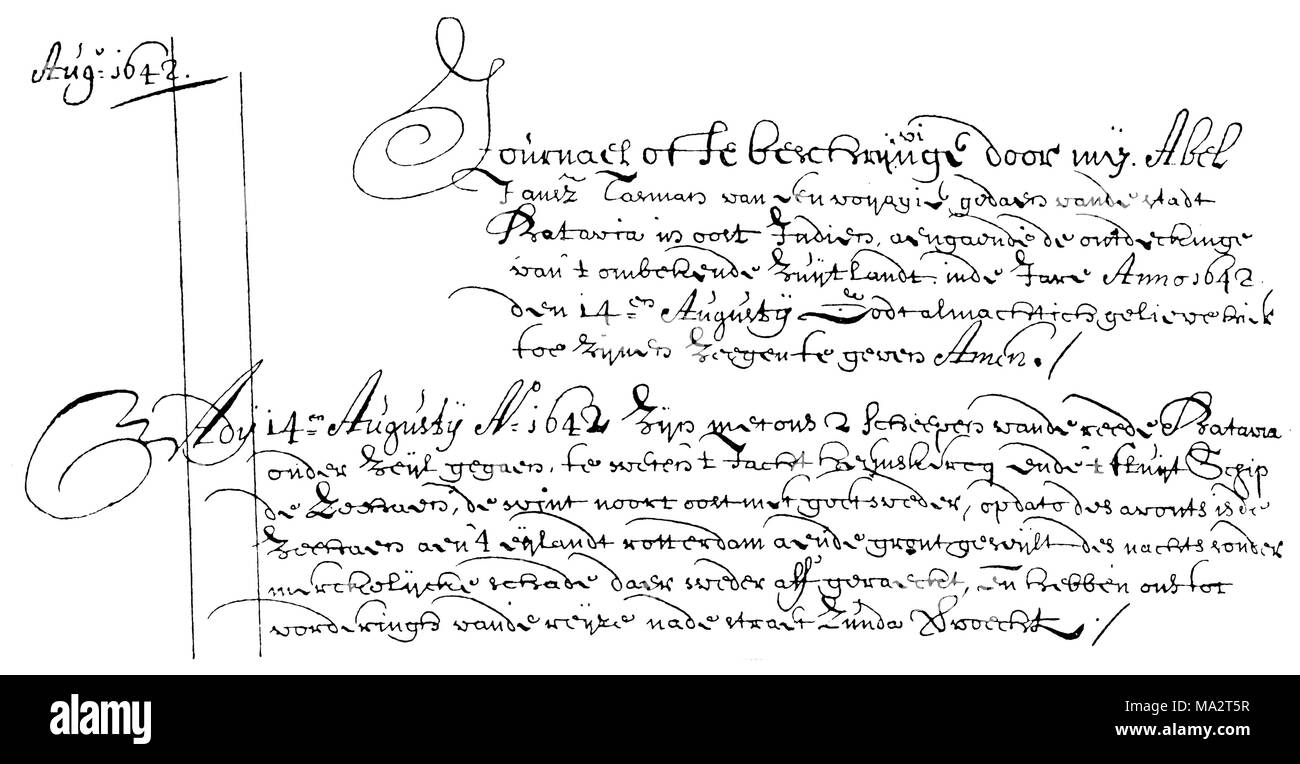 Augo: 1642.
Journael ofte beschrijvinge door mij. Abel
Jansz Tasman van een voijagie gedaen vande stadt
Batavia in oost Indien, aengaende de ontdeckinge
van 't ombekende Zuijtlandt. inde Jare Anno 1642
den 14en Augustij Godt almachtich gelieve hier
toe zijnen zeegen te geven Amen./
Adij 14en Augustij Ao 1642 Zijn met ons 2 schepen vande reede Batavia
onder zeijl gegaen, te weten 't Jacht Heemskercq ende 't fluijt Schip
de Zeehaen, de wint noort oost met goet weder, op dato des avonts is de
Zeehaen aen 't eijlandt rotterdam aende gront gewijlt des nachts sonder
merckelijcke schade daer weder aff geraeckt, en hebben ons tot
vorderingh vande reijze nade straet Zunda
alamy
alamy stock photo
MA2T5R
www.alamy.com